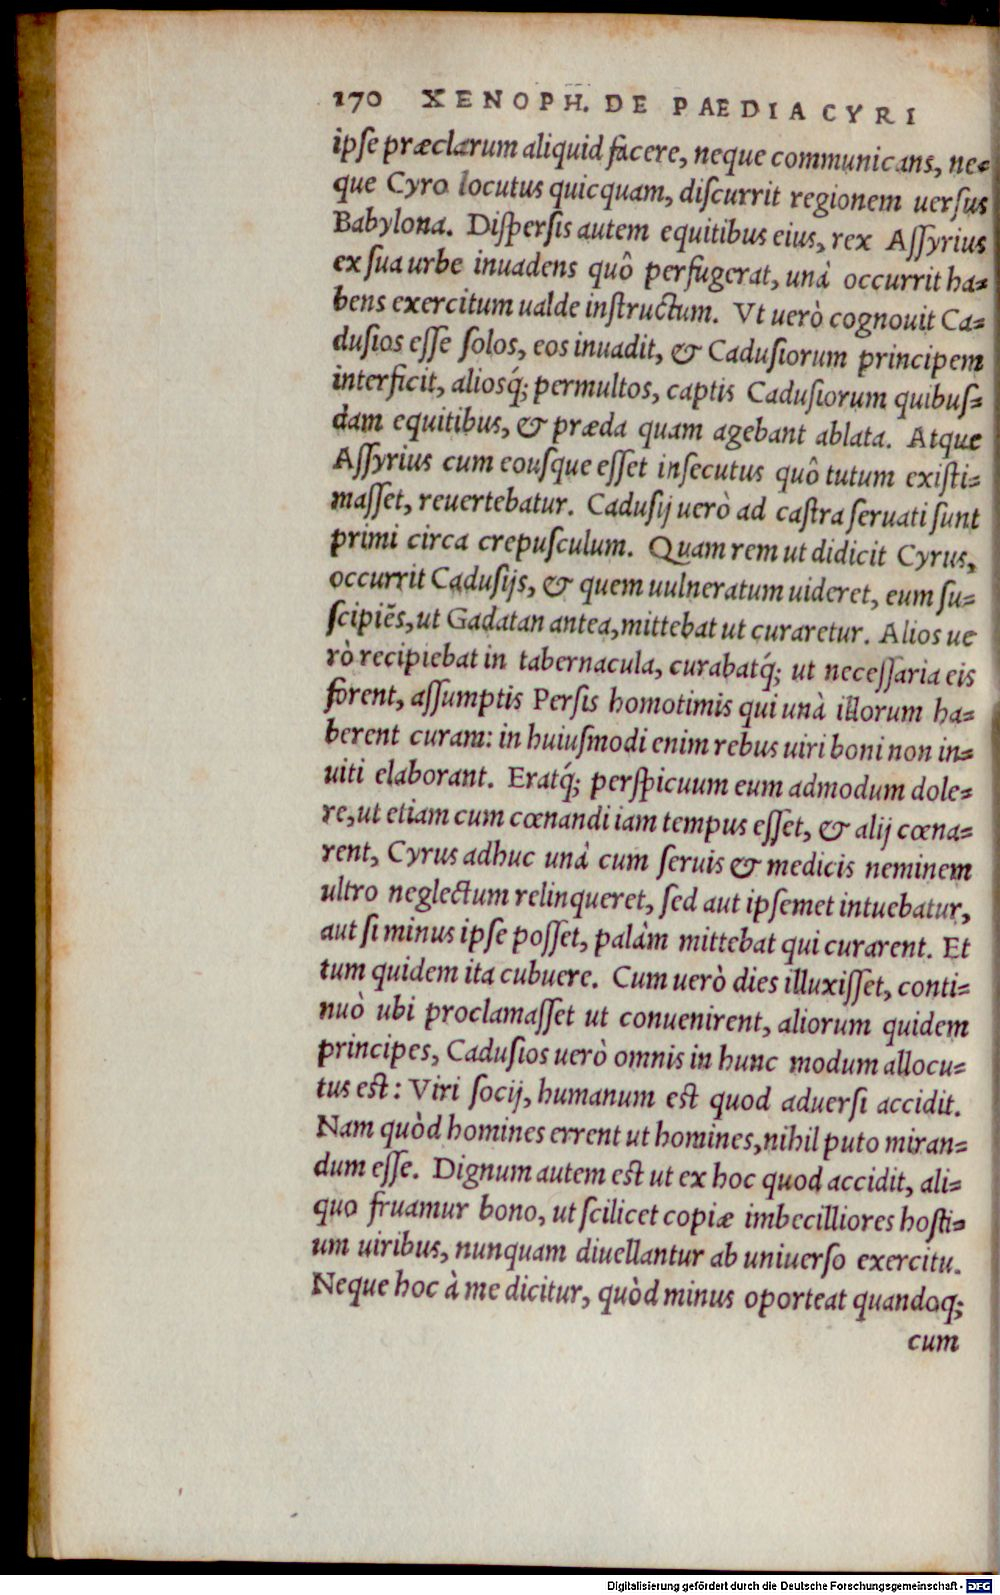 170 XENOPH. DE PAEDIA CYRI
ipſe præclarum aliquid facere, neque communicans, ne-
que Cyro locutus quicquam, diſcurrit regionem uerſus
Babylona. Diſperſis autem equitibus eius, rex Aſſyrius
ex ſua urbe inuadens quô perfugerat, unà occurrit ha-
bens exercitum ualde inſtructum. Vt uerò cognouit Ca-
duſios eſſe ſolos, eos inuadit, & Caduſiorum principem
interficit, alioſq́; permultos, captis Caduſiorum quibuſ-
dam equitibus, & præda quam agebant ablata. Atque
Aſſyrius cum eouſque eſſet inſecutus quô tutum exiſti-
maſſet, reuertebatur. Caduſij uerò ad caſtra ſeruati ſunt
primi circa crepuſculum. Quam rem ut didicit Cyrus,
occurrit Caduſijs, & quem uulneratum uideret, eum ſu-
ſcipiẽs, ut Gadatan antea, mittebat ut curaretur. Alios ue
rò recipiebat in tabernacula, curabatq́; ut neceſſaria eis
forent, aſſumptis Perſis homotimis qui unà illorum ha-
berent curam: in huiuſmodi enim rebus uiri boni non in-
uiti elaborant. Eratq́; perſpicuum eum admodum dole-
re, ut etiam cum cœnandi iam tempus eſſet, & alij cœna-
rent, Cyrus adhuc unà cum ſeruis & medicis neminem
ultro neglectum relinqueret, ſed aut ipſemet intuebatur,
aut ſi minus ipſe poſſet, palàm mittebat qui curarent. Et
tum quidem ita cubuere. Cum uerò dies illuxiſſet, conti-
nuò ubi proclamaſſet ut conuenirent, aliorum quidem
principes, Caduſios uerò omnis in hunc modum allocu-
tus eſt: Viri ſocij, humanum eſt quod aduerſi accidit.
Nam quòd homines errent ut homines, nihil puto miran-
dum eſſe. Dignum autem eſt ut ex hoc quod accidit, ali-
quo fruamur bono, ut ſcilicet copiæ imbecilliores hoſti-
um uiribus, nunquam diuellantur ab uniuerſo exercitu.
Neque hoc à me dicitur, quòd minus oporteat quandoq;
cum
Digitalisierung gefördert durch die Deutsche Forschungsgemeinschaft - DFG